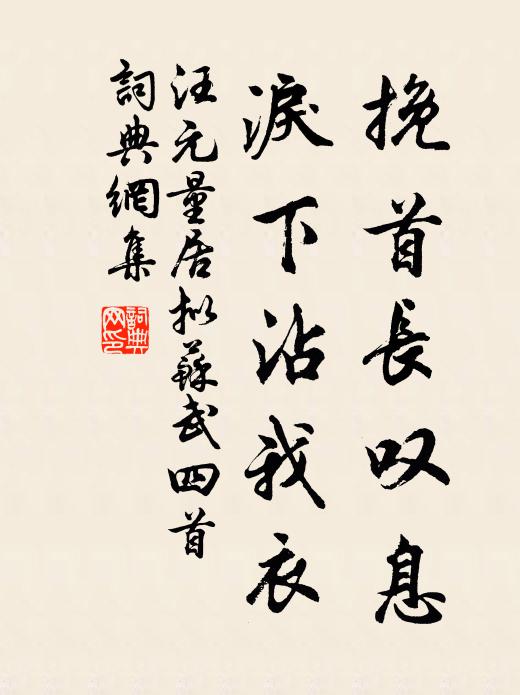 挽首長叹息
淚下沾我衣
汪元量居拟蘇武四首
詞典網集
詞典网印